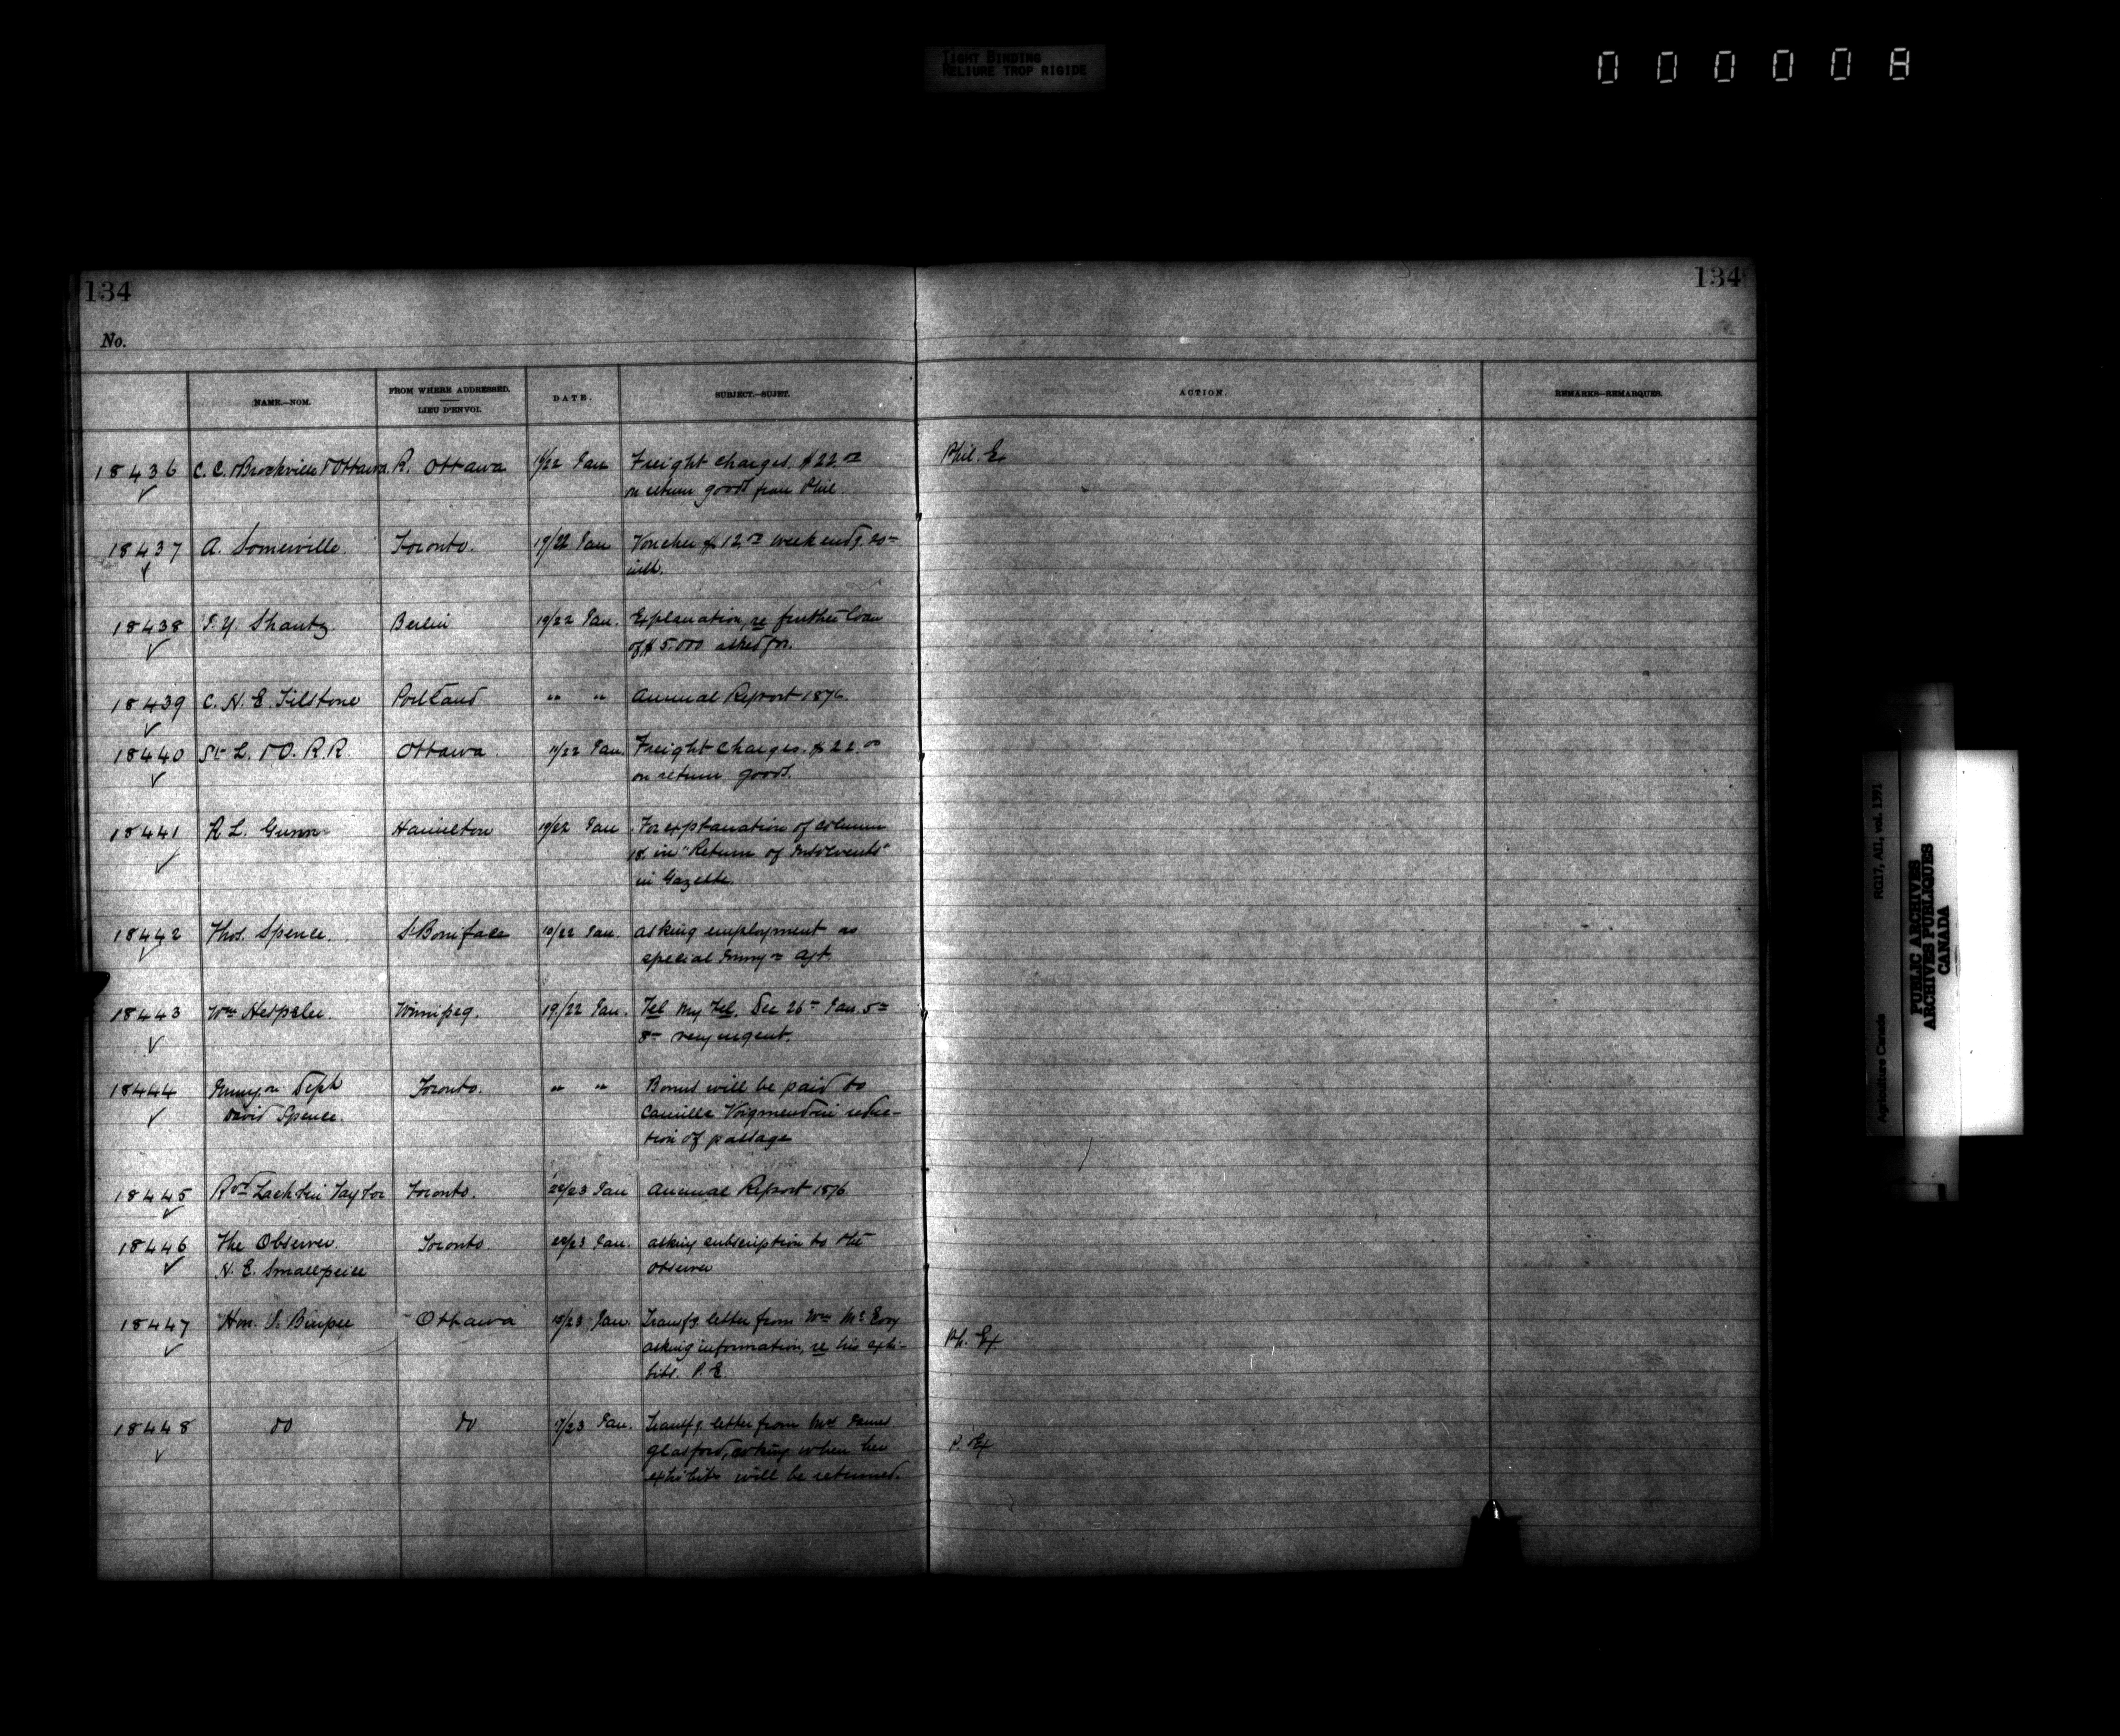 TIGHT BINDING
RELIURE TROP RIGIDE
000008
134
134
No.
NAME.—NOM.
FROM WHERE ADDRESSED.
LIEU D'ENVOI.
DATE.
SUBJECT.—SUJET.
ACTION.
REMARKS—REMARQUES.
18436 C. C. Brockville & Ottawa R. Ottawa /22 Jan Freight charges $22.00 Phil. Ex
on return goods from Phil
18437 A. Somerville. Toronto. 19/22 Jan Voucher $12.00 week endg. 20th
inst.
18438 J. Y. Shantz Berlin 19/22 Jan. Explanation, re further loan
of $5.000 asked for.
18439 C. H. E. Tilstone Portland " " Annual Report 1876
18440 St L. & O. R.R. Ottawa. /22 Jan. Freight charges. $22.00
on return goods.
18441 R L. Gunn Hamilton 19/22 Jan For explanation of column
18. in "Return of Insolvents"
in Gazette.
18442 Thos. Spence. St Boniface 10/22 Jan. asking employment as
special Immgn Agt.
18443 Wm Hespeler. Winnipeg. 19/22 Jan. Tel My Tel. Dec 26th Jan. 5th
8th very urgent.
18444 Immgn Dept Toronto. " " Bonus will be paid to
David Spence. Camille reduc-
tion of passage
18445 Revd Lachlin Taylor Toronto. 22/23 Jan Annual Report 1876
18446 The Observer. Toronto. 22/23 Jan. asking subscription to the
H. E. Smallpeice Observer
18447 Hon. I. Burpee Ottawa /23 Jan. Transfg letter from Wm Mc Evoy
asking information, re his exhi- Ph. Ex
bits. P. E.
18448 do do /23 Jan. Transfg. letter from Mrs James
Glasford, asking when her P. Ex
exhibits will be returned.
Agriculture Canada RG17, AII, vol. 1391
PUBLIC ARCHIVES
ARCHIVES PUBLIQUES
CANADA